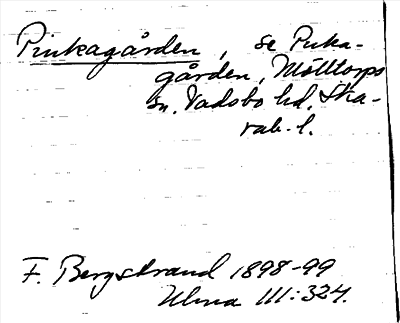 Pinkagården, se Pinka-
gården, Mölltorps
sn. Vadsbo hd. Ska-
rab. l.
F. Bergstrand 1898-99
Ulma 111:324.